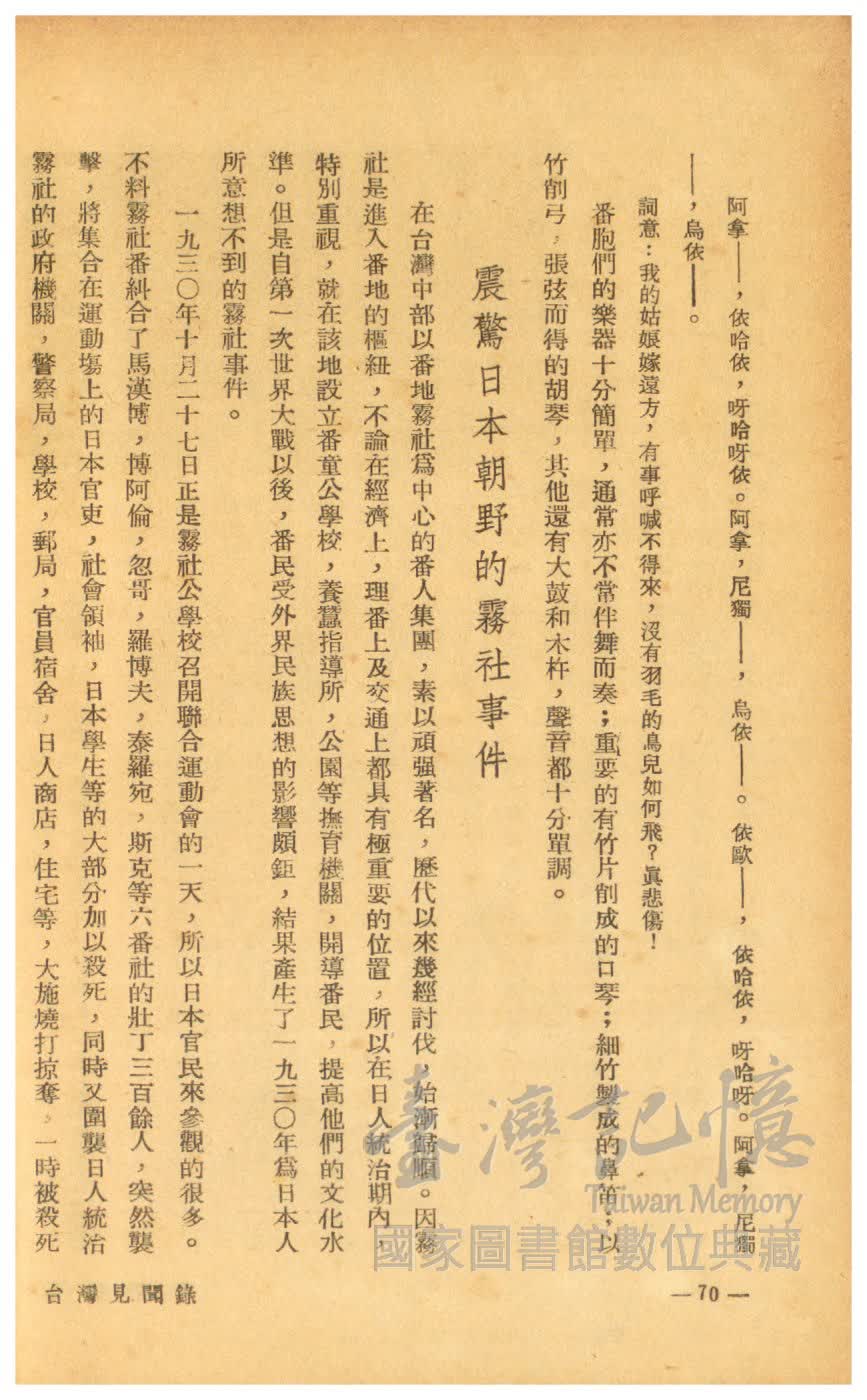 阿拿——，依哈依，呀哈呀依。阿拿，尼獨——，烏依——。依歐——，依哈依，呀哈呀。阿拿，尼獨
——，烏依——。
詞意：我的姑娘嫁遠方，有事呼喊不得來，沒有羽毛的鳥兒如何飛？眞悲傷！
番胞們的樂器十分簡單，通常亦不常伴舞而奏；重要的有竹片削成的口琴；細竹製成的鼻笛；以
竹削弓，張弦而得的胡琴，其他還有大鼓和木杵，聲音都十分單調。
震驚日本朝野的霧社事件
在台灣中部以番地霧社爲中心的番人集團，素以頑强著名，歷代以來幾經討伐，始漸歸順。因霧
社是進入番地的樞紐，不論在經濟上，理番上及交通上都具有極重要的位置，所以在日人統治期內，
特別重視，就在該地設立番童公學校，養蠶指導所，公園等撫育機關，開導番民，提高他們的文化水
準。但是自第一次世界大戰以後，番民受外界民族思想的影響頗鉅，結果產生了一九三〇年爲日本人
所意想不到的霧社事件。
一九三〇年十月二十七日正是霧社公學校召開聯合運動會的一天，所以日本官民來參觀的很多。
不料霧社番糾合了馬漢博，博阿倫，忽哥，羅博夫，泰羅宛，斯克等六番社的壯丁三百餘人，突然襲
擊，將集合在運動塲上的日本官吏，社會領袖，日本學生等的大部分加以殺死，同時又圍襲日人統治
霧社的政府機關，警察局，學校，郵局，官員宿舍，日人商店，住宅等，大施燒打掠奪，一時被殺死
台灣見聞錄
—70—
臺灣記憶
Taiwan Memory
國家圖書館數位典藏